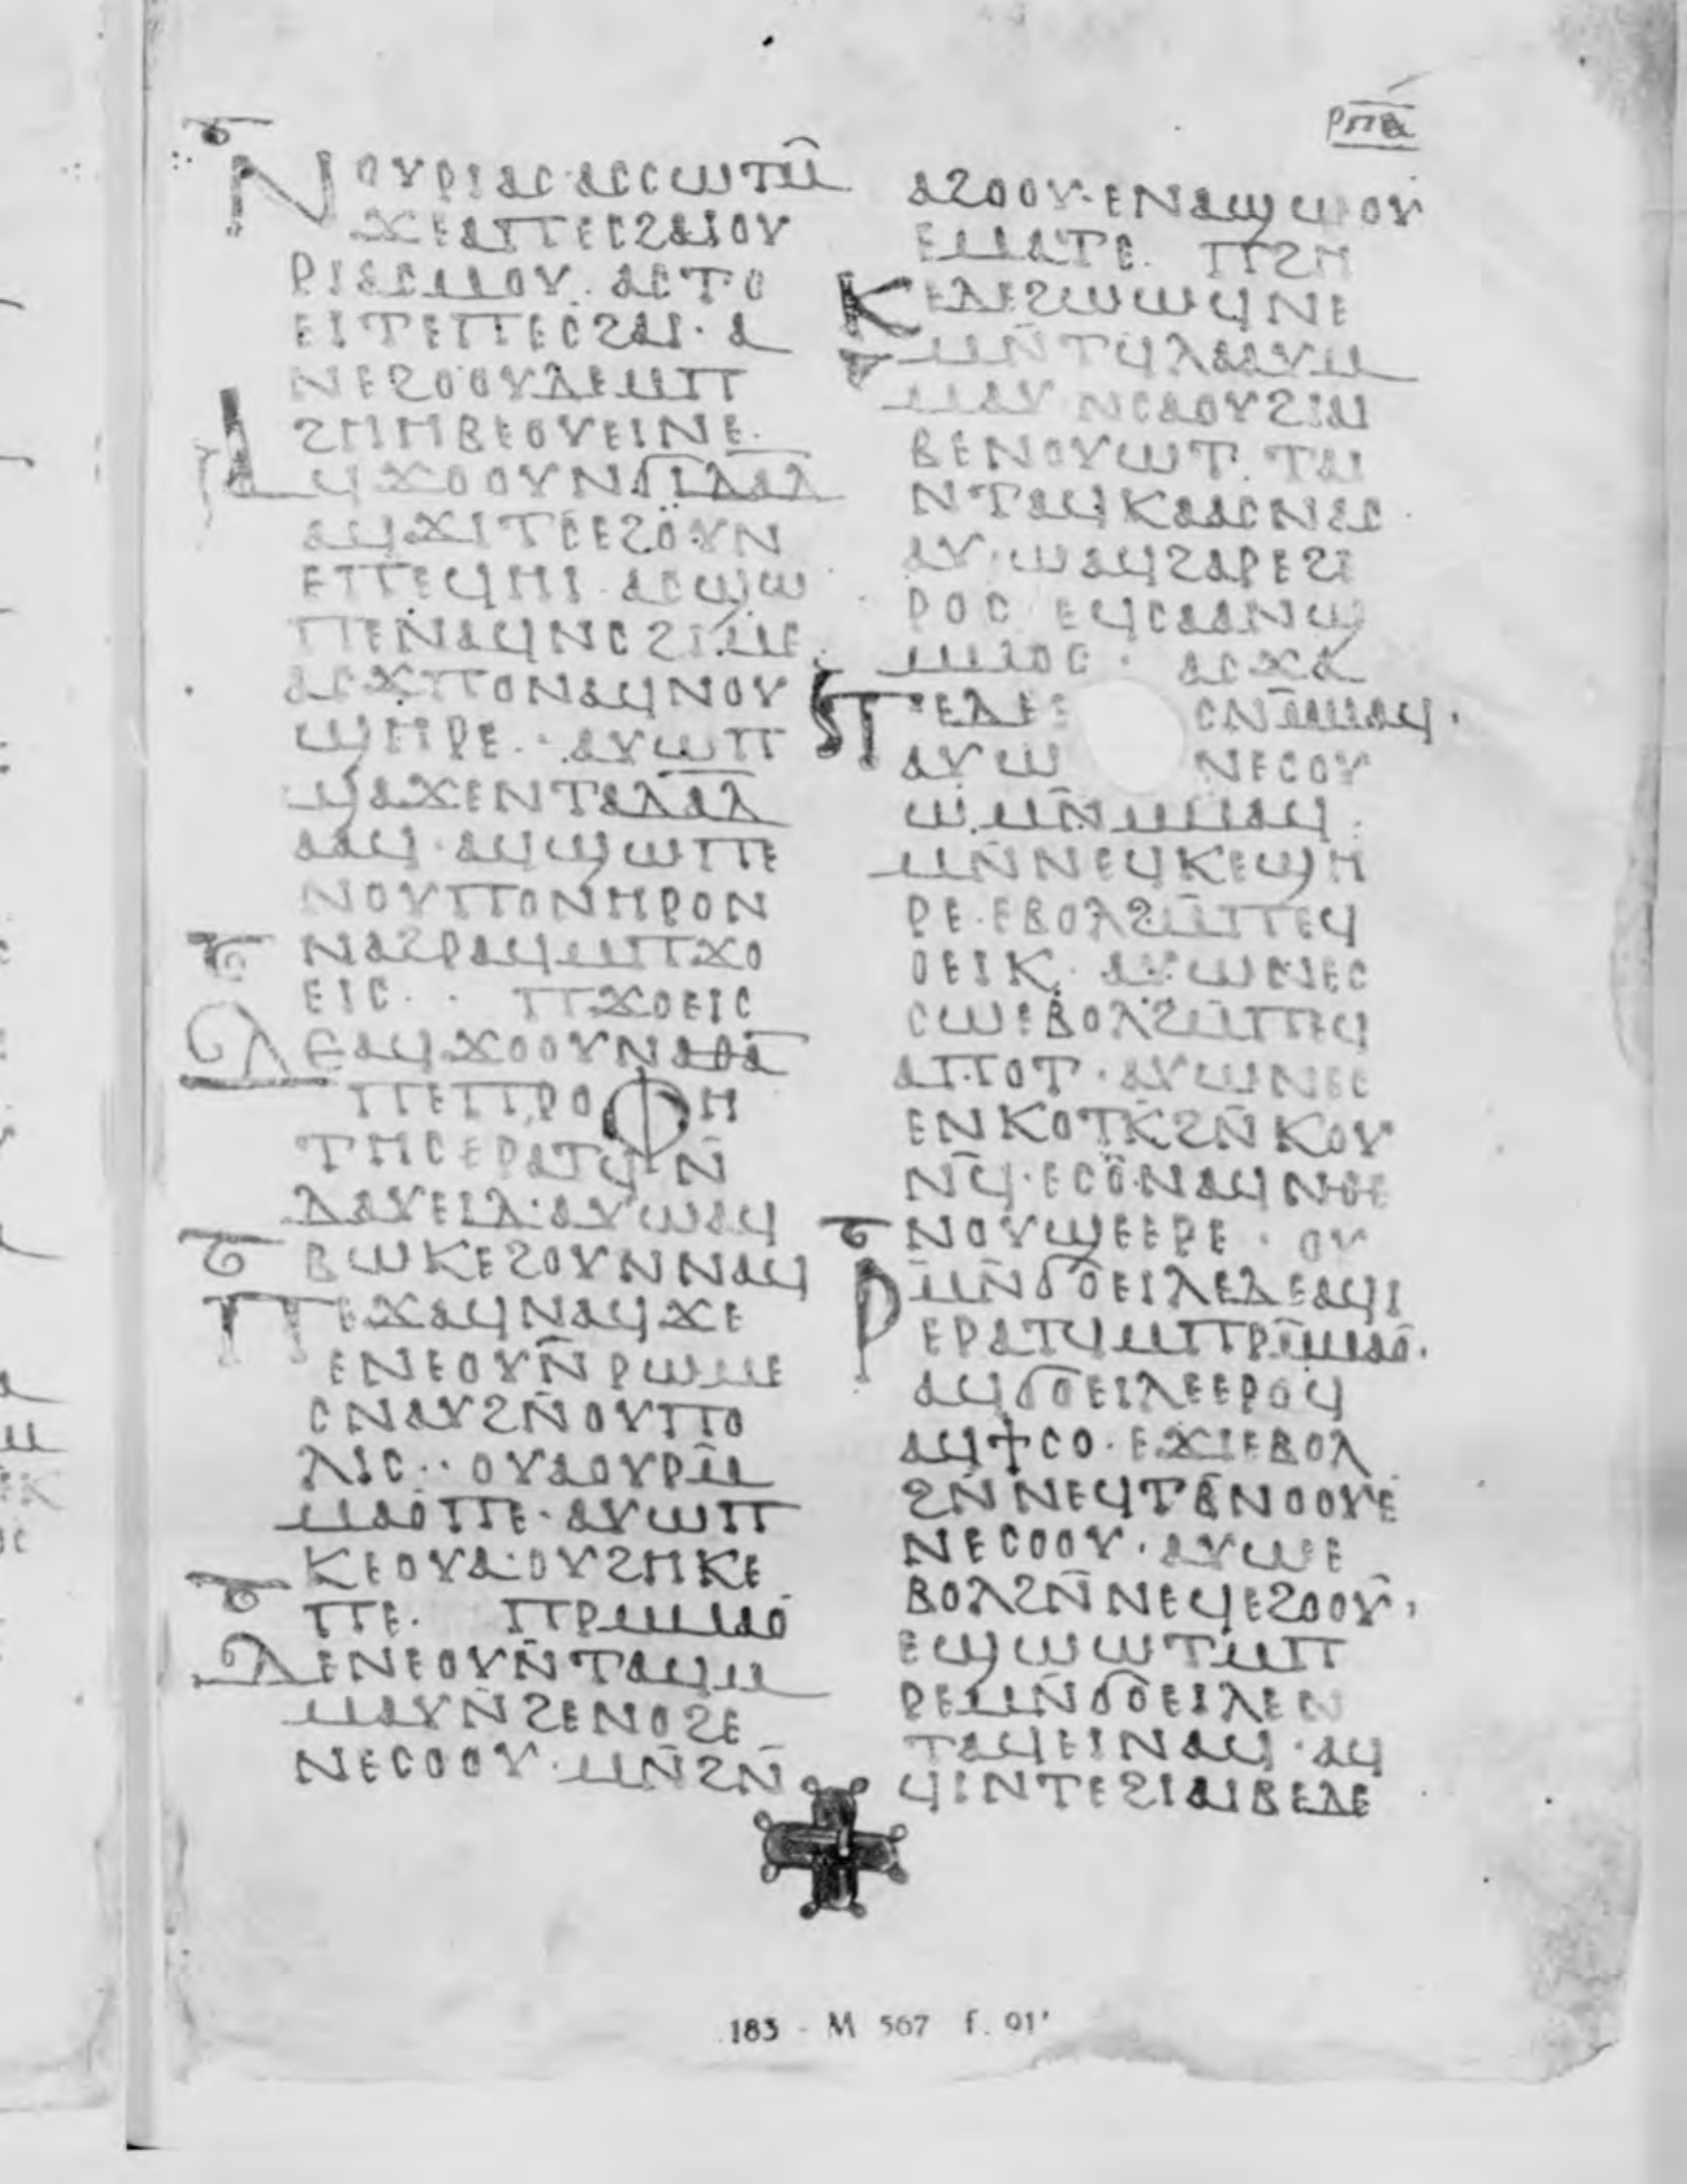 ⲣⲡⲁ̅
ⲛⲟⲩⲣⲓⲁⲥ·ⲁⲥⲥⲱⲧⲙ̄
ϫⲉⲁⲡⲉⲥϩⲁⲓⲟⲩ
ⲣⲓⲁⲥⲙⲟⲩ·ⲁⲥⲧⲟ
ⲉⲓⲧⲉⲡⲉⲥϩⲁⲓ·ⲁ
ⲛⲉϩⲟⲟⲩⲇⲉⲙⲡ
ϩⲏⲏⲃⲉⲟⲩⲉⲓⲛⲉ·
ⲁϥϫⲟⲟⲩⲛϭⲓⲇⲁⲇ
ⲁϥϫⲓⲧⲥⲉϩⲟⲩⲛ
ⲉⲡⲉϥⲏⲓ·ⲁⲥϣⲱ
ⲡⲉⲛⲁϥⲛⲥϩⲓⲙⲉ
ⲁⲥϫⲡⲟⲛⲁϥⲛⲟⲩ
ϣⲏⲣⲉ·ⲁⲩⲱⲡ
ϣⲁϫⲉⲛⲧⲁⲇⲁⲇ
ⲁⲁϥ·ⲁϥϣⲱⲡⲉ
ⲛⲟⲩⲡⲟⲛⲏⲣⲟⲛ
ⲛⲁϩⲣⲁϥⲙⲡϫⲟ
ⲉⲓⲥ·· ⲡϫⲟⲉⲓⲥ
ⲇⲉⲁϥϫⲟⲟⲩⲛⲛⲁⲑⲁ
ⲡⲉⲡⲣⲟⲫⲏ
ⲧⲏⲥⲉⲣⲁⲧϥⲛ̄
ⲇⲁⲩⲉⲓⲇ·ⲁⲩⲱⲁϥ
ⲃⲱⲕⲉϩⲟⲩⲛⲛⲁϥ
ⲡⲉϫⲁϥⲛⲁϥϫⲉ
ⲉⲛⲉⲟⲩⲛ̄ⲣⲱⲙⲉ
ⲥⲛⲁⲩϩⲛ̄ⲟⲩⲡⲟ
ⲗⲓⲥ··ⲟⲩⲁⲟⲩⲣⲙ̄
ⲙⲁⲟⲡⲉ·ⲁⲩⲱⲡ
ⲕⲉⲟⲩⲁ·ⲟⲩϩⲏⲕⲉ
ⲡⲉ· ⲡⲣⲙⲙⲁⲟ
ⲇⲉⲛⲉⲟⲩⲛ̄ⲧⲁϥⲙ
ⲙⲁⲩⲛ̄ϩⲉⲛⲟϩⲉ
ⲛⲉⲥⲟⲟⲩ·ⲙⲛ̄ϩⲛ̄
ⲁϩⲟⲟⲩ·ⲉⲛⲁϣⲱⲟⲩ
ⲉⲙⲁⲧⲉ· ⲡϩⲏ
ⲕⲉⲇⲉϩⲱⲱϥⲛⲉ
ⲙⲛ̄ⲧϥⲗⲁⲁⲩⲙ
ⲙⲁⲩⲛⲥⲁⲟⲩϩⲓⲁⲓ
ⲃⲉⲛⲟⲩⲱⲧ·ⲧⲁⲓ
ⲛⲧⲁϥⲕⲁⲁⲥⲛⲁⲥ·
ⲁⲩⲱⲁϥϩⲁⲣⲉϩⲉ
ⲣⲟⲥ ⲉϥⲥⲁⲁⲛϣ
ⲙⲙⲟⲥ· ⲁⲥϫⲁ
ⲧⲉⲇⲉⲥⲛⲙ̄ⲙⲁϥ·
ⲁⲩⲱ ⲛⲉⲥⲟⲩ
ⲱⲙⲛ̄ⲙⲙⲁϥ·
ⲙⲛ̄ⲛⲉϥⲕⲉϣⲏ
ⲣⲉ·ⲉⲃⲟⲗϩⲙ̄ⲡⲉϥ
ⲟⲉⲓⲕ·ⲁⲩⲱⲛⲉⲥ
ⲥⲱⲉⲃⲟⲗϩⲙ̄ⲡⲉϥ
ⲁⲡⲟⲧ·ⲁⲩⲱⲛⲉⲥ
ⲉⲛⲕⲟⲧⲕϩⲛ̄ⲕⲟⲩ
ⲛϥ̄·ⲉⲥⲟⲛⲁϥⲛⲑⲉ
ⲛⲟⲩϣⲉⲉⲣⲉ· ⲟⲩ
ⲣⲙⲛ̄ϭⲟⲉⲓⲗⲉⲇⲉⲁϥⲓ
ⲉⲣⲁⲧϥⲙⲡⲣⲙ̄ⲙⲁⲟ·
ⲁϥϭⲟⲉⲓⲗⲉⲉⲣⲟϥ
ⲁϥϯⲥⲟ·ⲉϫⲓⲉⲃⲟⲗ
ϩⲛ̄ⲛⲉϥⲧⲃⲛⲟⲟⲩⲉ
ⲛⲉⲥⲟⲟⲩ·ⲁⲩⲱⲉ
ⲃⲟⲗϩⲛ̄ⲛⲉϥⲉϩⲟⲟⲩ·
ⲉϣⲱⲱⲧⲙⲡ
ⲣⲉⲙⲛ̄ϭⲟⲉⲓⲗⲉⲛ
ⲧⲁϥⲉⲓⲛⲁϥ·ⲁϥ
ϥⲓⲛⲧⲉϩⲓⲁⲓⲃⲉⲇⲉ
183 - M 567 f. 91ʳ